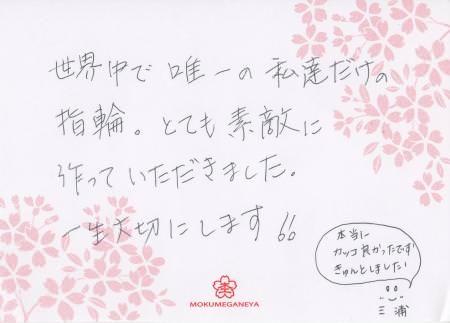 世界中で唯一の私達だけの
指輪。とても素敵に
作っていただきました。
一生大切にします
本当に
カッコ良かったです
きゅんとしました!
三浦
MOKUMEGANEYA